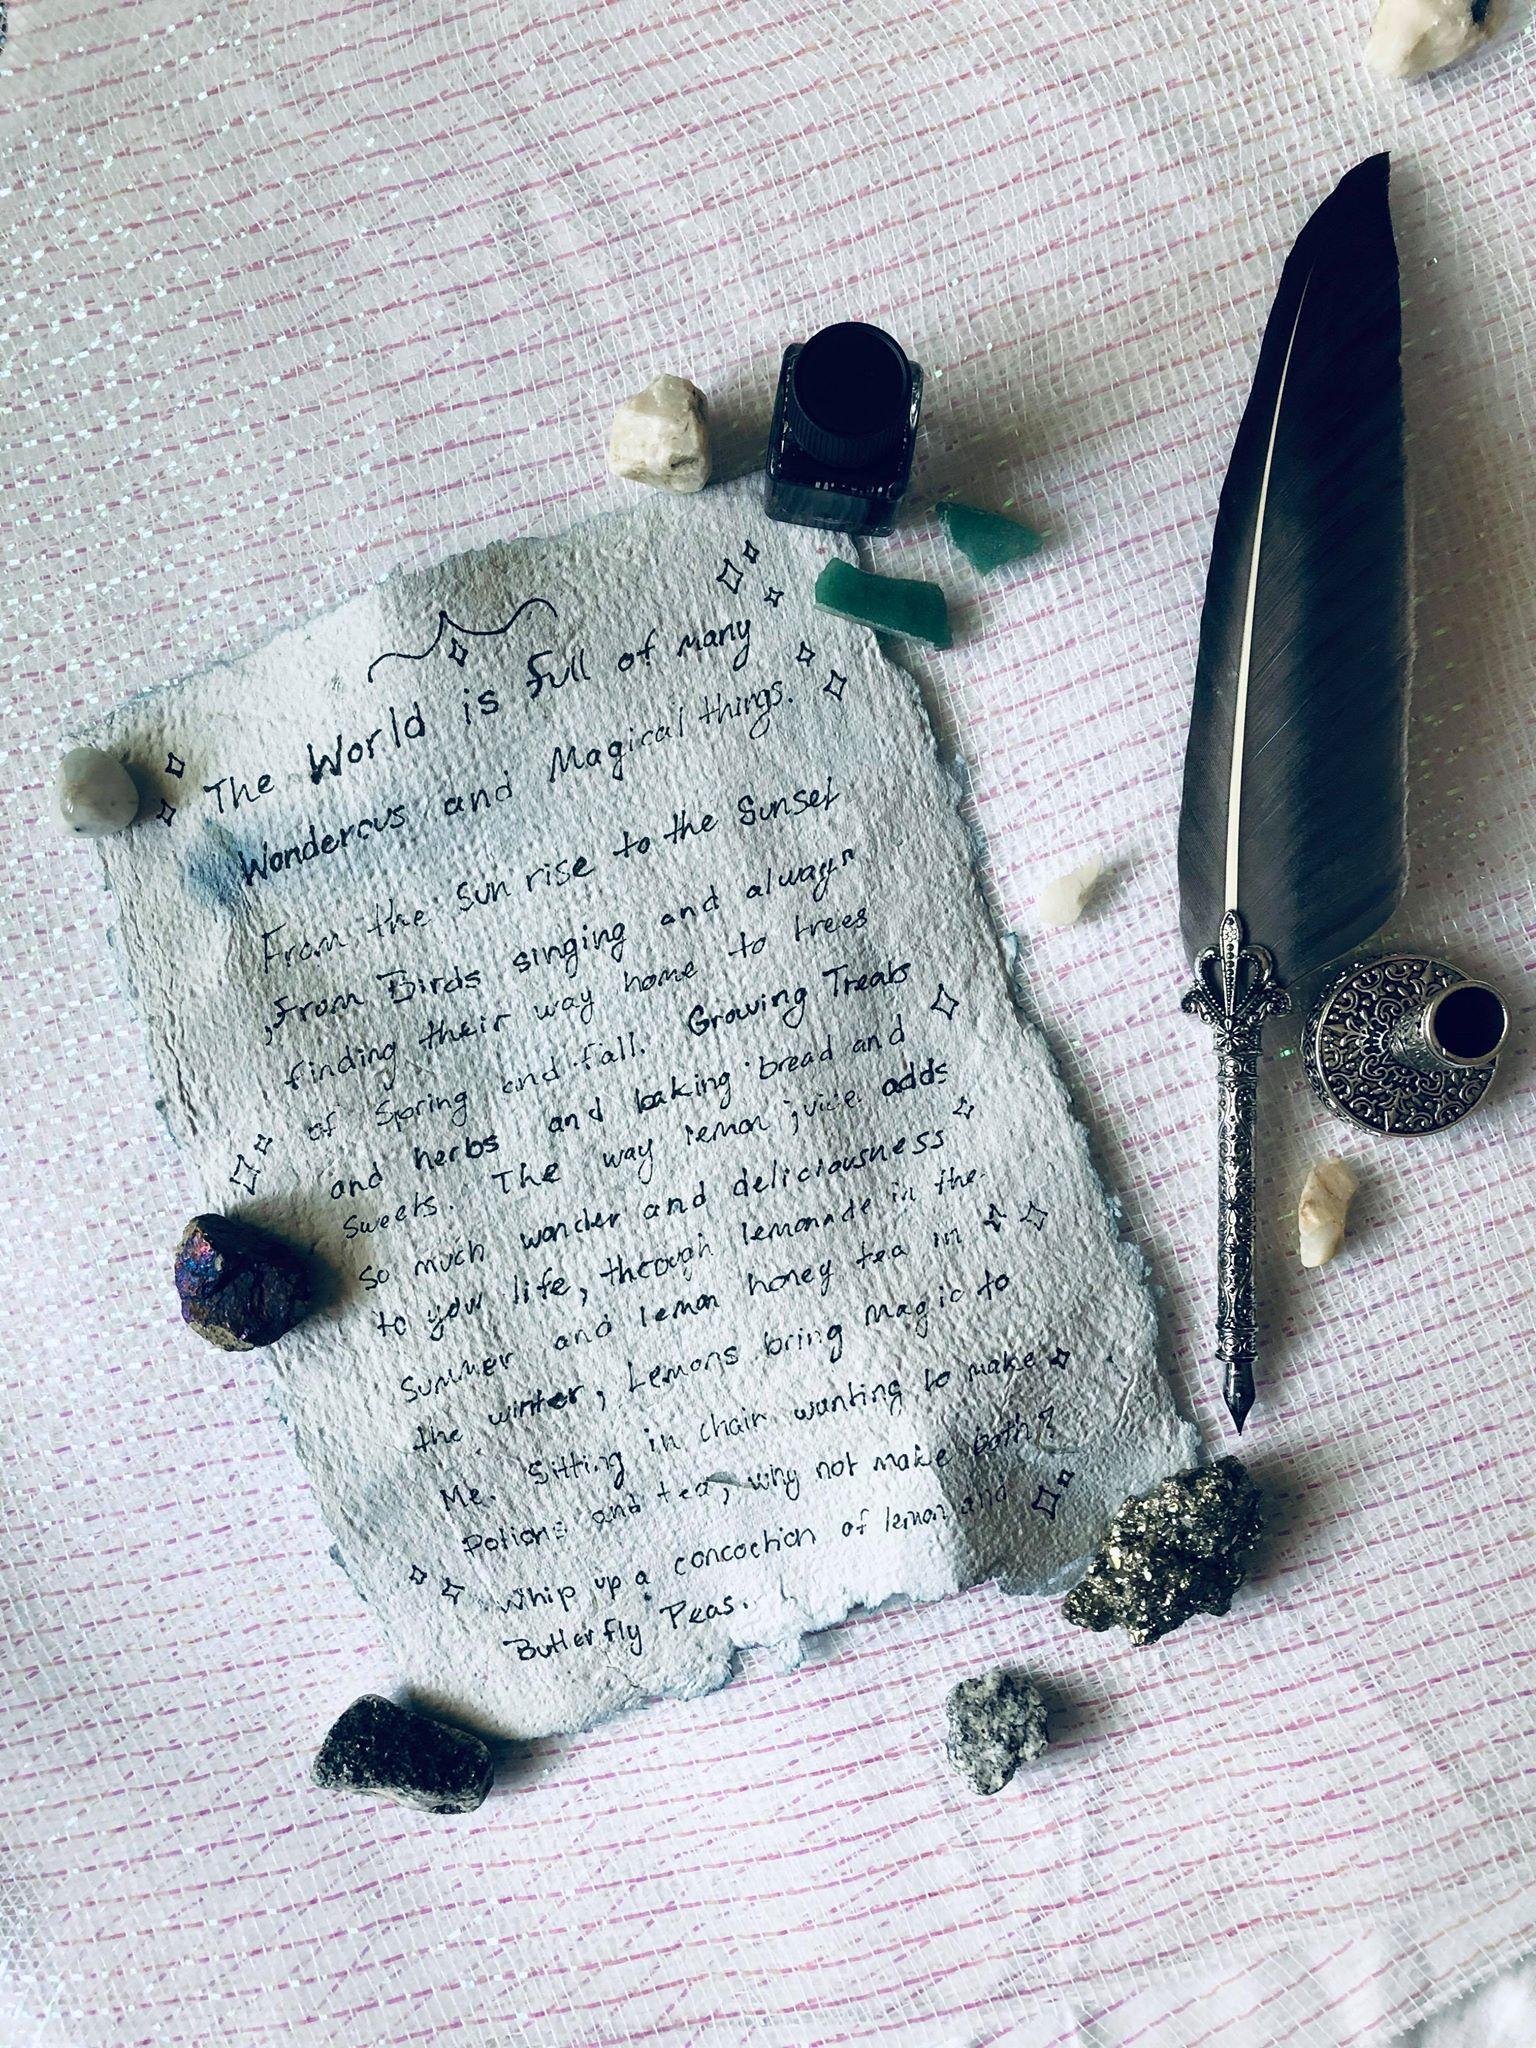 The World is full of many
Wonderous and Magical things.
From the Sun rise to the Sunset
,from Birds singing and always
finding their way home to trees
of Spring and fall. Growing Treats
and herbs and baking bread and
Sweets. The way lemon juice adds
so much wonder and deliciousness
to your life, through lemonade in the
Summer and lemon honey tea in
the winter, Lemons bring magic to
Me. Sitting in chair wanting to make
Potions and tea, why not make both?
Whip up a concoction of lemon and
Butterfly Peas.